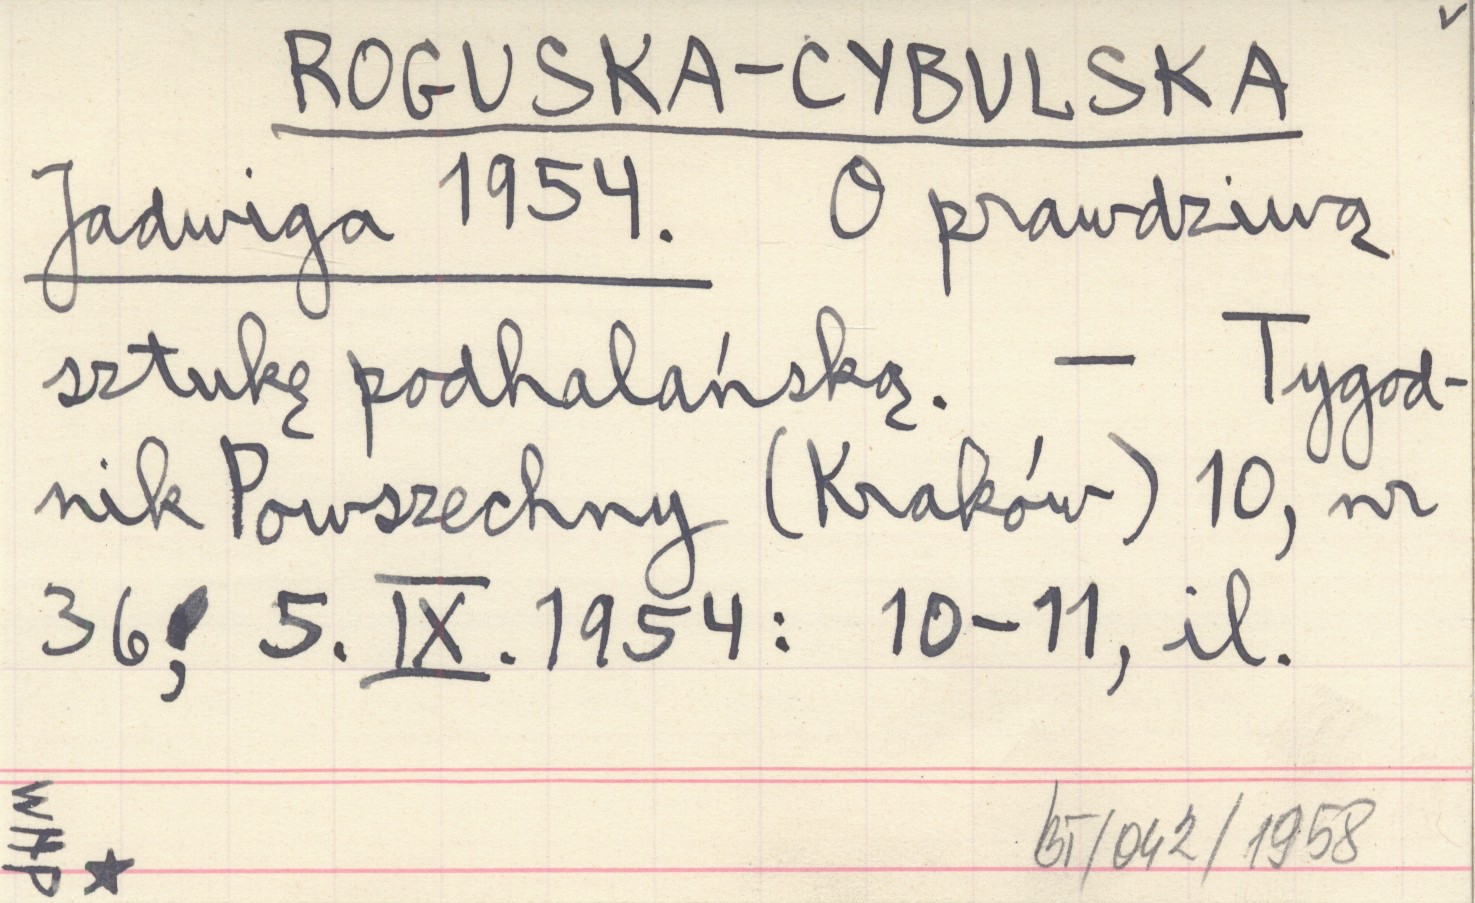 ROGUSKA-CYBULSKA
Jadwiga 1954. O prawdziwą
sztukę podhalańską. — Tygod-
nik Powszechny (Kraków) 10, nr
36; 5. IX. 1954: 10-11, il.
WHP
BT/042/1958